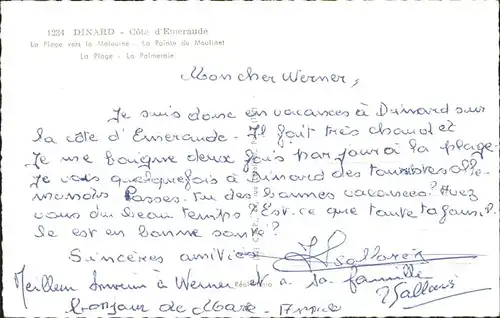 1224 DINARD - Côte d'Emeraude
La Plage vers la Malouine - La Pointe du Moulinet
La Plage - La Palmeraie
Mon cher Werner,
Je suis donc en vacances à Dinard sur
la côte d'Emeraude - Il fait très chaud et
Je me baigne deux fois par jour à la plage.
Je vois quelquefois à Dinard des touristes alle-
mands Passes-tu des bonnes vacances? Avez
vous du beau temps? Est-ce que toute ta famil-
le est en bonne santé?
Sincères amitiés
Meilleur souvenir à Werner et a sa famille
bonjour de Marc -